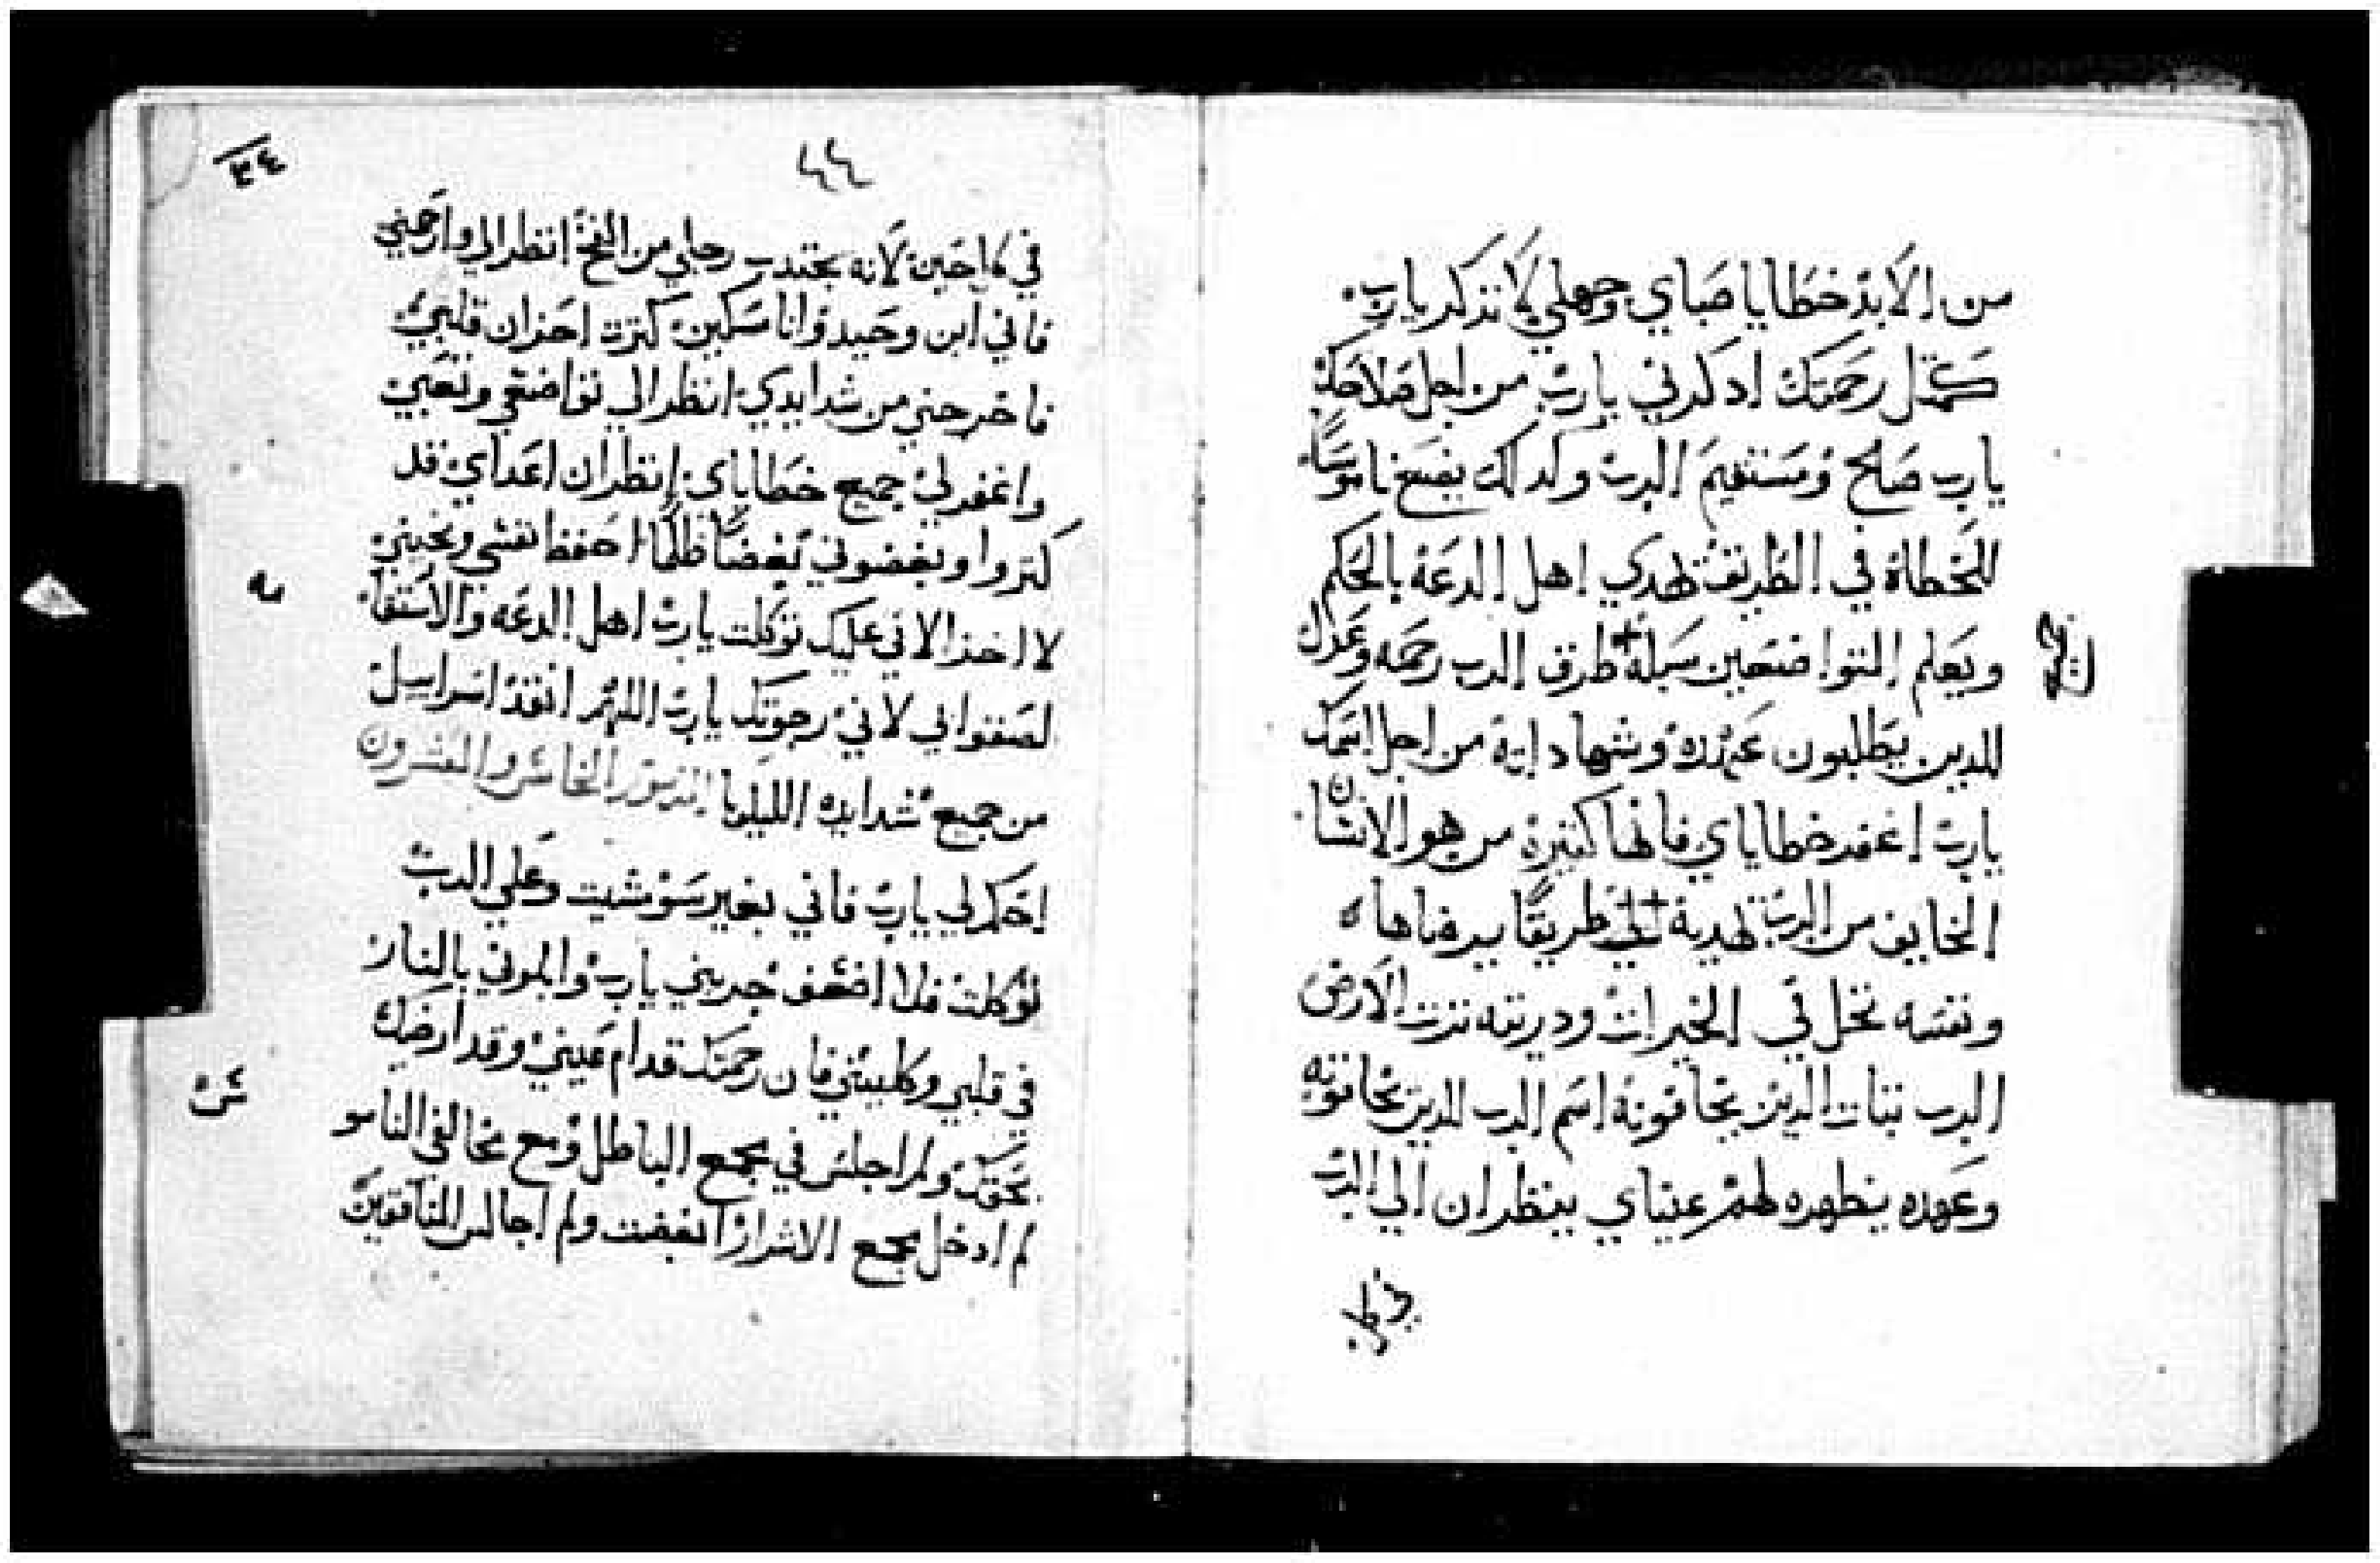 من الابد خطايا صباي وجهلي لا تذكر يارب
كمثل رحمتك ادكرني يارب من اجل صلاحك
يارب صالح ومستقيم الرب ولدلك يضع ناموسًا
للخطاة في الطريق يهدي اهل الدعة بالحكم
ويعلم المتواضعين سبله طرق الرب رحمه وعدل
للدين يطلبون عهده وشهاداته من اجل اسمك
يارب اغفر خطاياي فانها كتيرة من هو الانسان
الخايف من الرب يهديه في طريقًا يرضاها
ونفسه تحل في الخيرات ودريته ترت الارض
الرب تبات الدين يخافونه اسم الرب للدين يخافونه
وعهده يظهره لهم عيناي ينظران الي الرب
في كل
٣٤
٤٤
في كل حين لانه يجتدب رجلي من الفخ انظر الي وارحمني
فاني ابن وحيد وانا مسكين كترت احزان قلبي
فاخرجني من شدايدي انظر الي تواضعي وتعبي
واغفر لي جميع خطاياي انظر ان اعداي قد
كتروا وبغضوني بغضًا ظلمًا احفظ نفسي ونجيني
لا اخزا لاني عليك توكلت يارب اهل الدعه والاستقا
لصقوا بي لاني رجوتك يارب اللهم انقد اسراييل
من جميع شدايده الليلويا المزمور الخامس والعشرون
احكم لي يارب فاني بغير سو مشيت وعلي الرب
توكلت فلا اضعف جربني يارب وابلوني بالنار
في قلبي وكليتي فان رحمتك قدام عيني وقد ارضيك
بحقك ولم اجلس في مجمع الباطل ومع مخالفي الناموس
لم ادخل مجمع الاشرار ابغضت ولم اجالس المنافقين